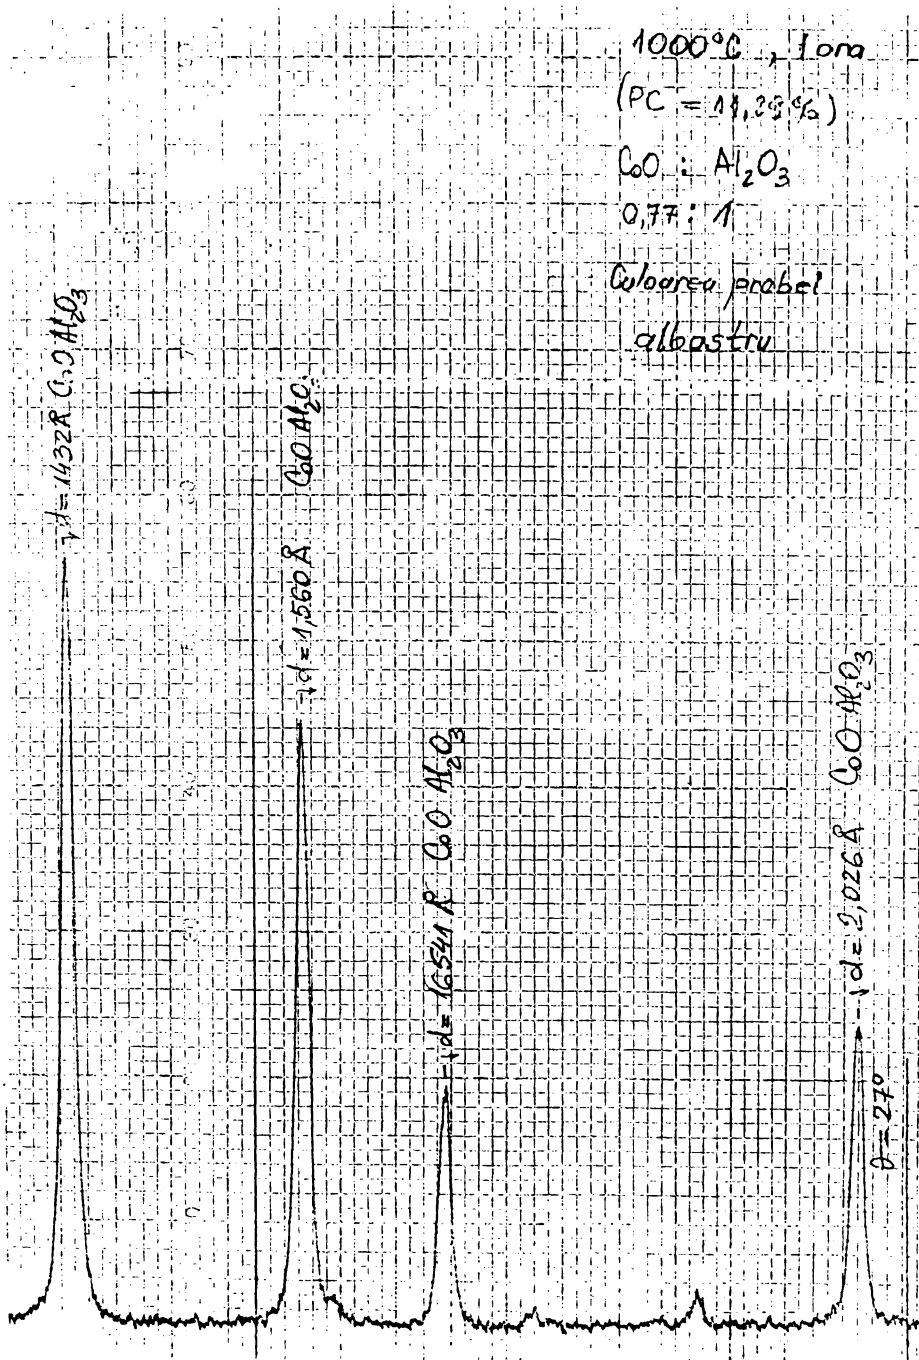 1000°C , 1 ora
(PC = 11,29 %)
CoO : Al2O3
0,77 : 1
Culoarea probei
albastru
d = 1432Å CoO Al2O3
d = 1,560 Å CoO Al2O3
d = 16541 Å CoO Al2O3
d = 2,026 Å CoO Al2O3
θ = 27°